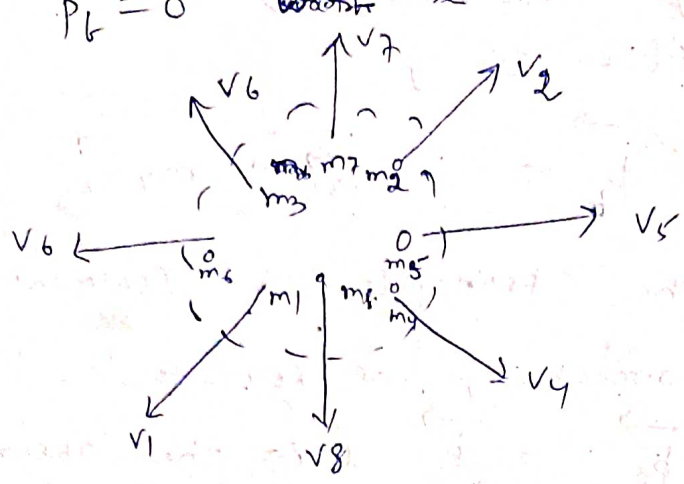 Pb = 0
V7
V6
V2
m7 m2
m3
V6
V5
m6
m5
m1
m8
m4
V4
V1
V8